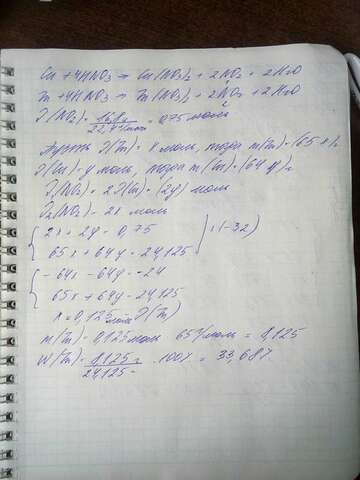 Cu + 4HNO3 → Cu(NO3)2 + 2NO2 + 2H2O
Zn + 4HNO3 → Zn(NO3)2 + 2NO2 + 2H2O
ν(NO2) = 16,8л / 22,4л/моль = 0,75 моль
Пусть ν(Zn) = x моль, тогда m(Zn) = (65x)г
ν(Cu) = y моль, тогда m(Cu) = (64y)г
ν1(NO2) = 2ν(Cu) = (2y) моль
ν2(NO2) = 2x моль
{ 2x + 2y = 0,75 } | (-32)
65x + 64y = 24,125
{ -64x - 64y = -24
65x + 64y = 24,125
x = 0,125 моль ν(Zn)
m(Zn) = 0,125 моль · 65 г/моль = 8,125
W(Zn) = 8,125г / 24,125г · 100% = 33,68%